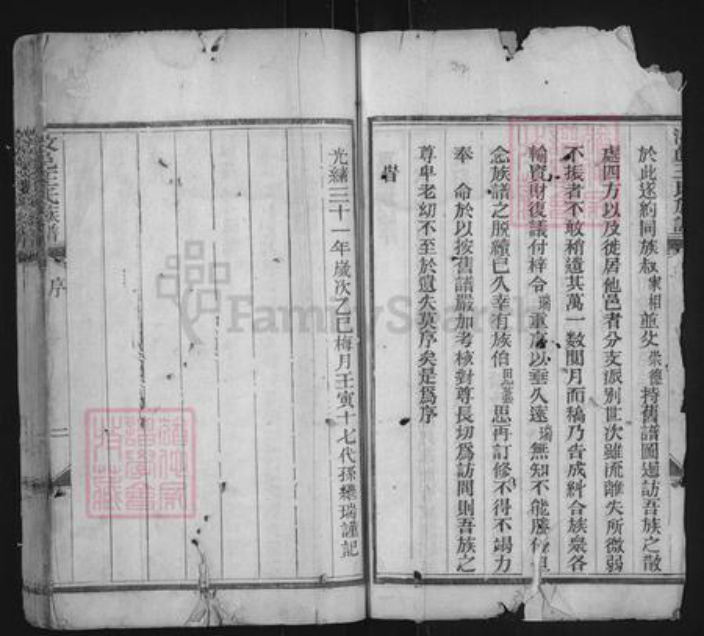 於此遂約同族叔家相並姪崇德持舊譜圖遍訪吾族之散
處四方以及徙居他邑者分支派別世次雖流離失所微弱
不振者不敢稍遺其萬一數閱月而稿乃告成糾合族衆各
輸資財復議付梓令瑞重序以垂久遠瑞無知不能勝任但
念族譜之脫續已久幸有族伯思再訂修不得不竭力
奉命於以按舊譜嚴加考核對尊長切爲訪問則吾族之
尊卑老幼不至於遺失莫序矣是爲序
時
光緒三十一年歲次乙巳梅月壬寅十七代孫繼瑞謹記
邑王氏族譜
序
一
FamilySearch